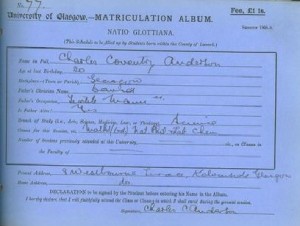 No. 77
University of Glasgow.—MATRICULATION ALBUM. Fee, £1 1s.
NATIO GLOTTIANA. SESSION
(This Schedule to be filled up by Students born within the County of Lanark.)
Name in Full Charles Coventry Anderson
Age at last Birthday 20
Birthplace—Town or Parish Glasgow
Father's Christian Name
Father's Designation
Father
Branch of Study (i.e., Arts, Science,
Classes for this Session Nat Phil Lab Chem
Number of Sessions previously attended in this University,
in the Faculty of
Present Address 8 Westbourne Terrace Kelvinside Glasgow
Home Address do
DECLARATION to be signed by the Student before entering his Name in the Album.
I hereby declare, that I will faithfully attend the Class or Classes in which I shall enrol during the present session.
Signature, Charles C Anderson